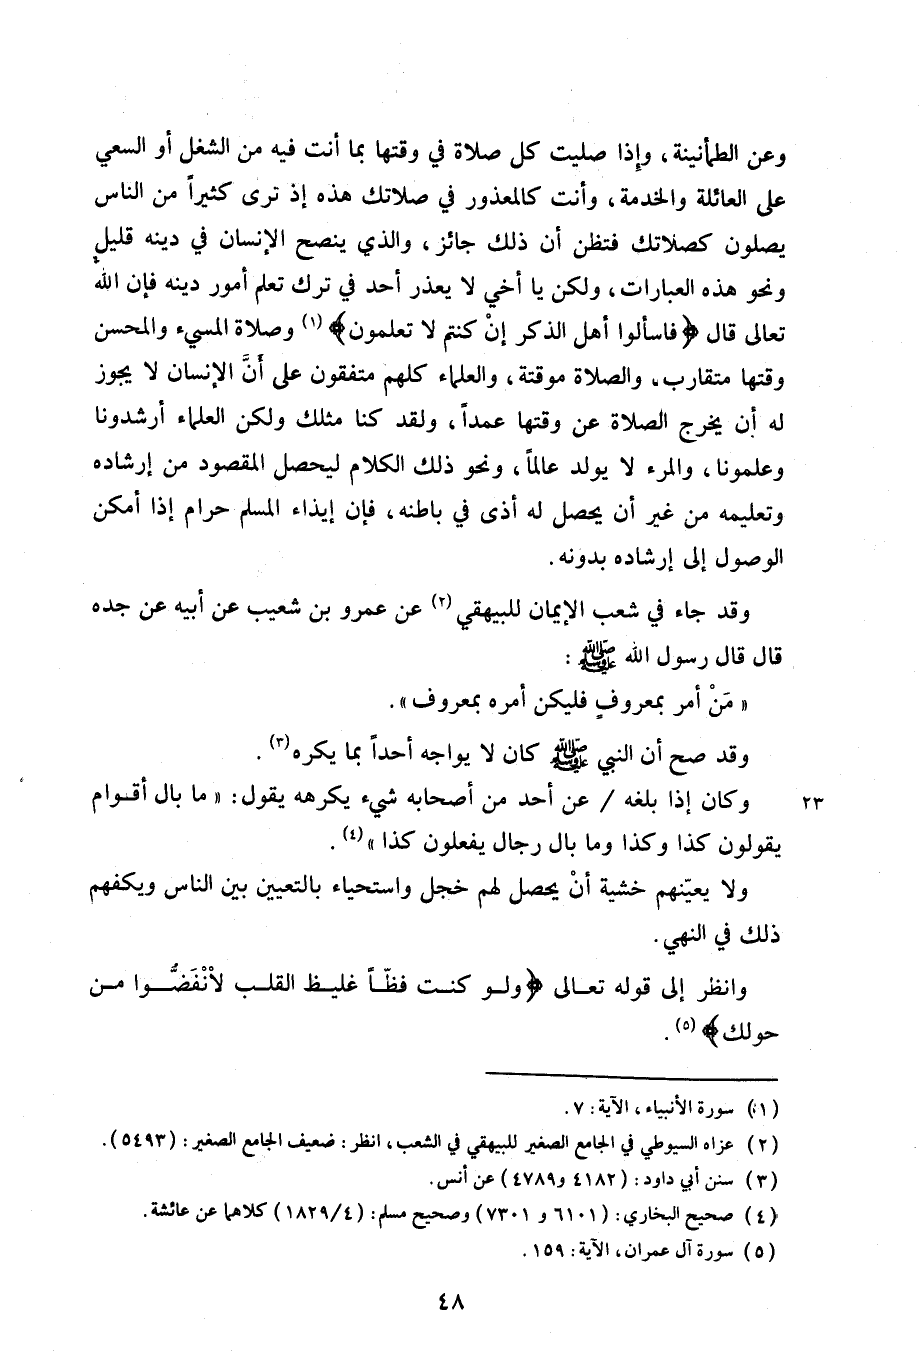 وعن الطمأنينة، وإذا صليت كل صلاة في وقتها بما أنت فيه من الشغل أو السعي
على العائلة والخدمة، وأنت كالمعذور في صلاتك هذه إذ ترى كثيراً من الناس
يصلون كصلاتك فتظن أن ذلك جائز، والذي ينصح الإنسان في دينه قليل
ونحو هذه العبارات، ولكن يا أخي لا يعذر أحد في ترك تعلم أمور دينه فإن الله
تعالى قال ﴿فاسألوا أهل الذكر إنْ كنتم لا تعلمون﴾(١) وصلاة المسيء والمحسن
وقتها متقارب، والصلاة موقتة، والعلماء كلهم متفقون على أَنَّ الإنسان لا يجوز
له أن يخرج الصلاة عن وقتها عمداً، ولقد كنا مثلك ولكن العلماء أرشدونا
وعلمونا، والمرء لا يولد عالماً، ونحو ذلك الكلام ليحصل المقصود من إرشاده
وتعليمه من غير أن يحصل له أذى في باطنه، فإن إيذاء المسلم حرام إذا أمكن
الوصول إلى إرشاده بدونه.
وقد جاء في شعب الإيمان للبيهقي(٢) عن عمرو بن شعيب عن أبيه عن جده
قال قال رسول الله ﷺ :
« مَنْ أمر بمعروفٍ فليكن أمره بمعروف ».
وقد صح أن النبي ﷺ كان لا يواجه أحداً بما يكره(٣).
٢٣ وكان إذا بلغه / عن أحد من أصحابه شيء يكرهه يقول: « ما بال أقوام
يقولون كذا وكذا وما بال رجال يفعلون كذا »(٤).
ولا يعيّنهم خشية أنْ يحصل لهم خجل واستحياء بالتعيين بين الناس ويكفهم
ذلك في النهي.
وانظر إلى قوله تعالى ﴿ولو كنت فظّاً غليظ القلب لأنْفَضُّوا من
حولك﴾(٥).
(١) سورة الأنبياء، الآية: ٧.
(٢) عزاه السيوطي في الجامع الصغير للبيهقي في الشعب، انظر: ضعيف الجامع الصغير: (٥٤٩٣).
(٣) سنن أبي داود: (٤١٨٢ و٤٧٨٩) عن أنس.
(٤) صحيح البخاري: (٦١٠١ و ٧٣٠١) وصحيح مسلم: (١٨٢٩/٤) كلاهما عن عائشة.
(٥) سورة آل عمران، الآية: ١٥٩.
٤٨